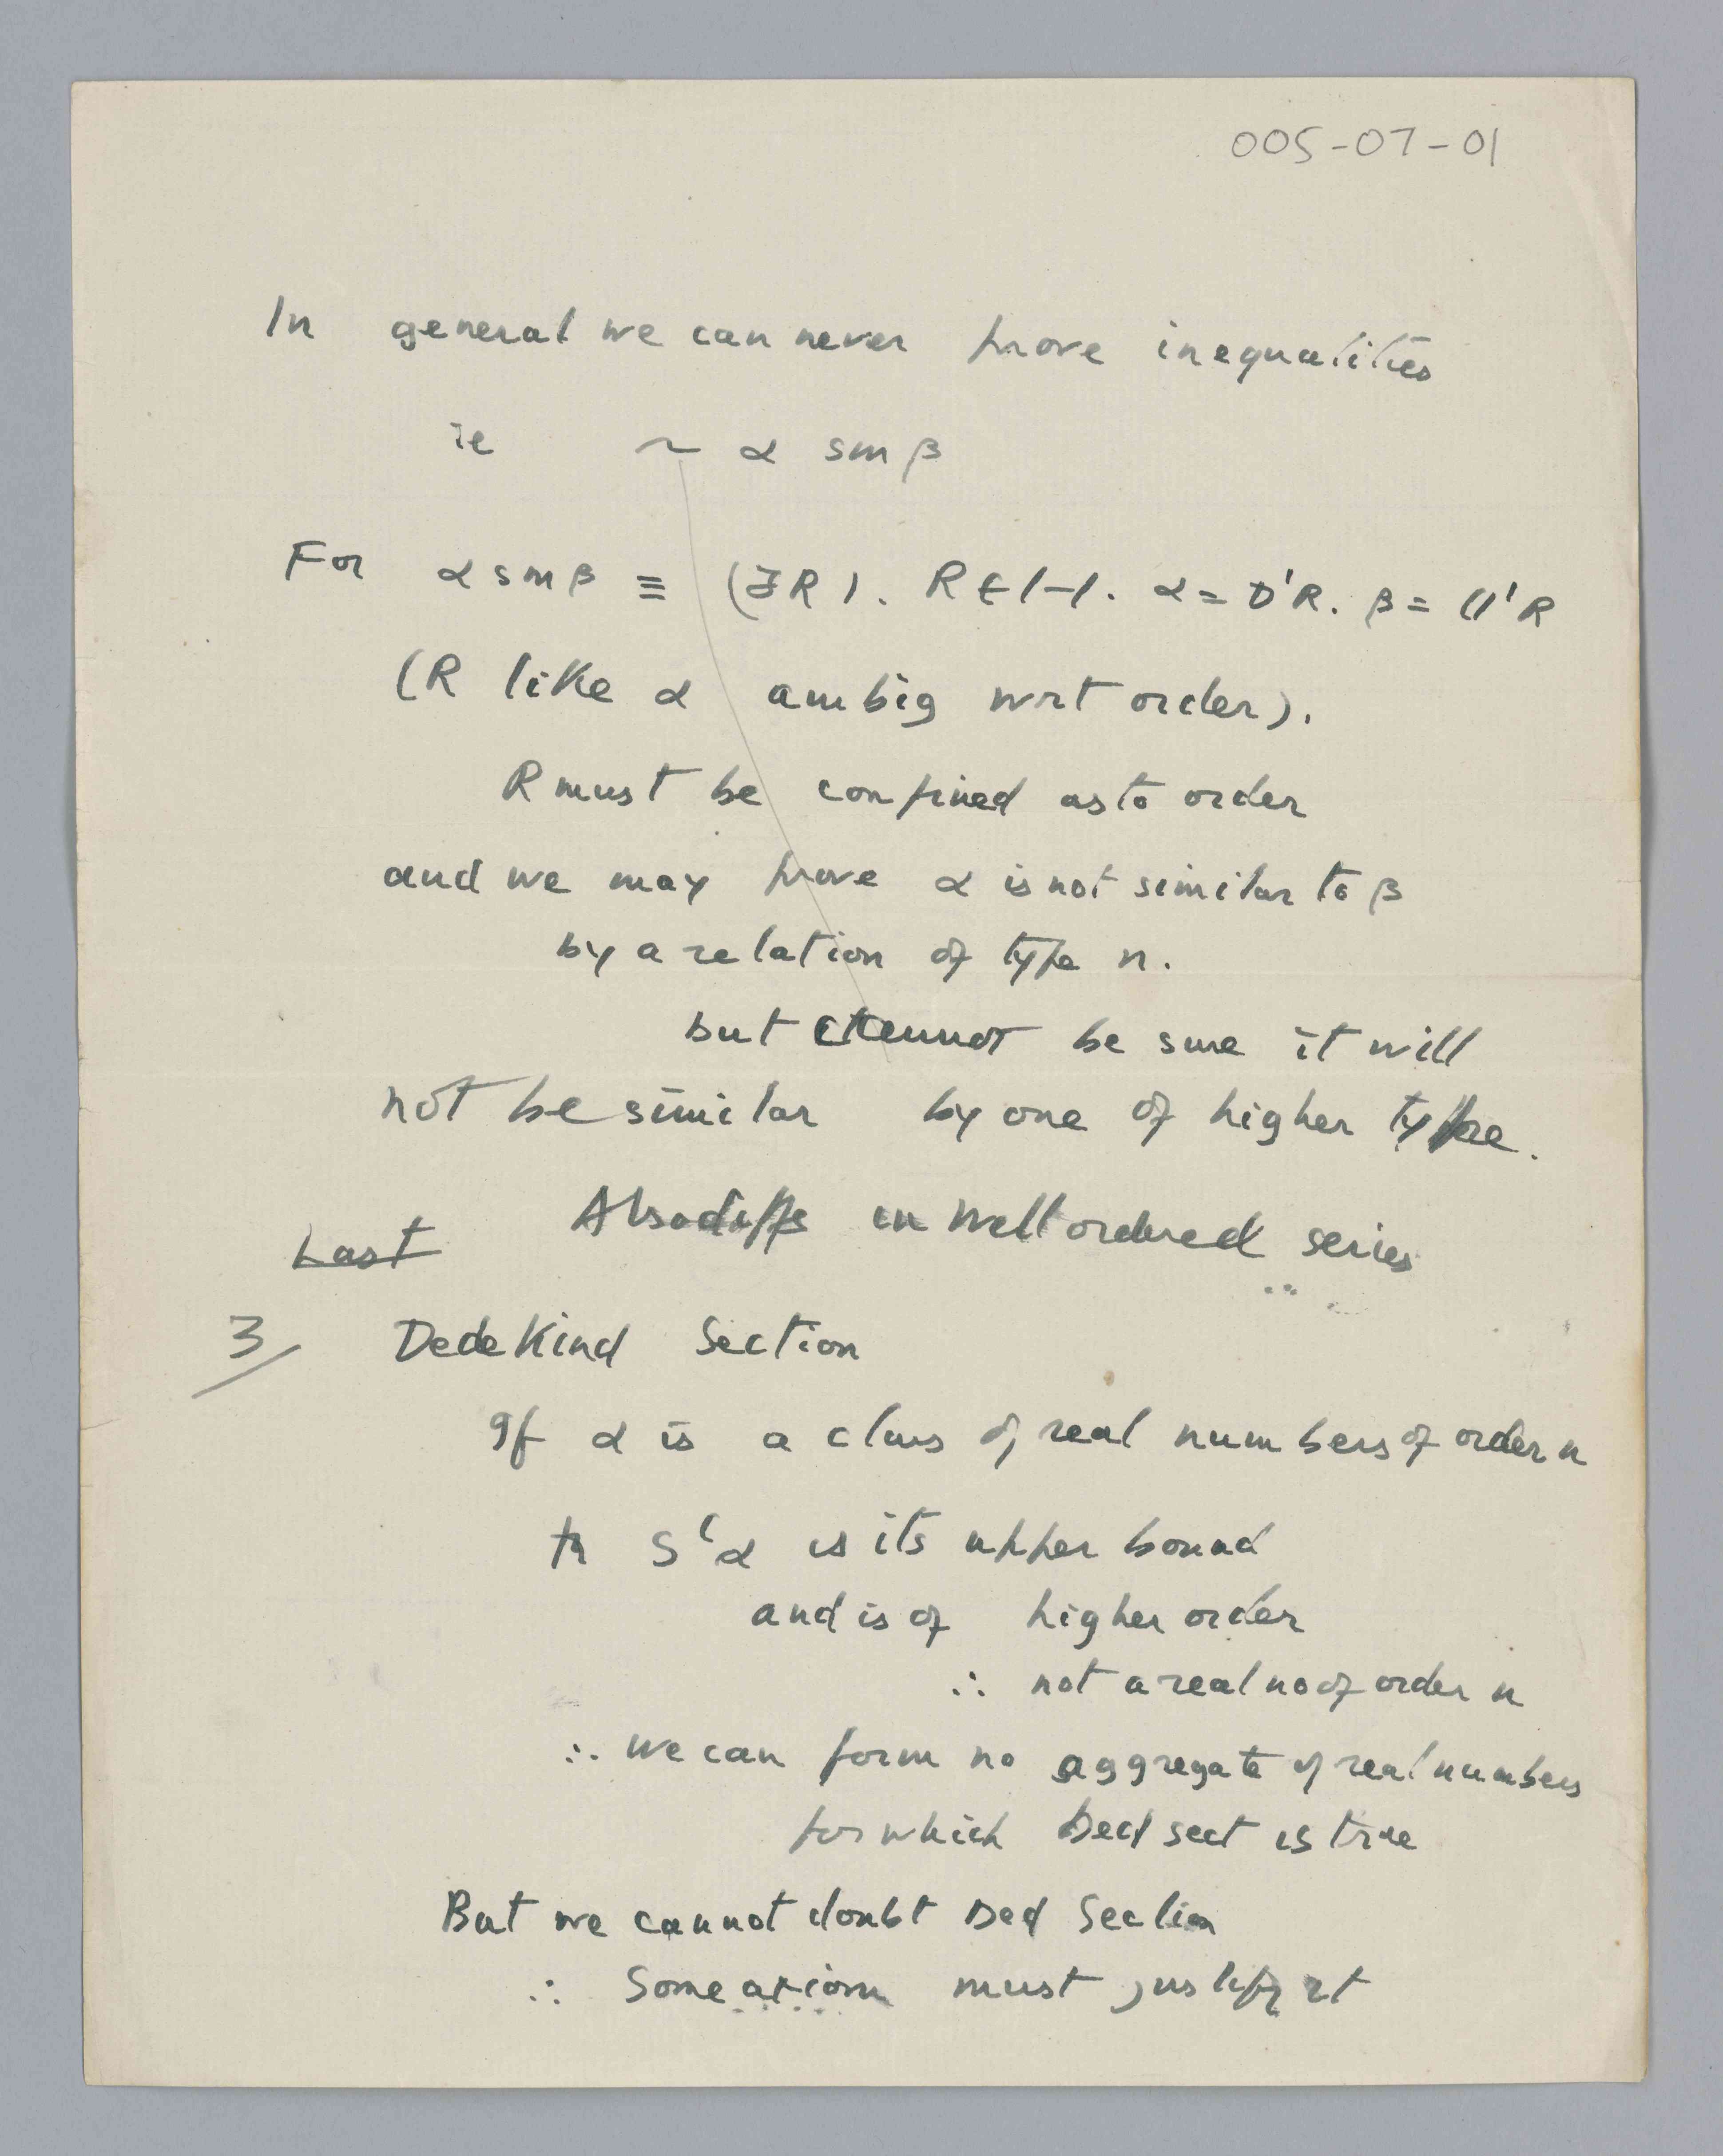 005-07-01
In general we can never prove inequalities
ie ~ α sm β
For α sm β ≡ (∃R). R ∈ 1-1. α = D'R. β = Ɑ'R
(R like α ambig wrt order).
R must be confined as to order
and we may prove α is not similar to β
by a relation of type n.
but cannot be sure it will
not be similar by one of higher type.
Also diffs in well ordered series
Last
3/ Dedekind Section
If α is a class of real numbers of order n
s'α is its upper bound
and is of higher order
∴ not a real no of order n
∴ we can form no aggregate of real numbers
for which Ded sect is true
But we cannot doubt Ded Section
∴ Some axiom must justify it